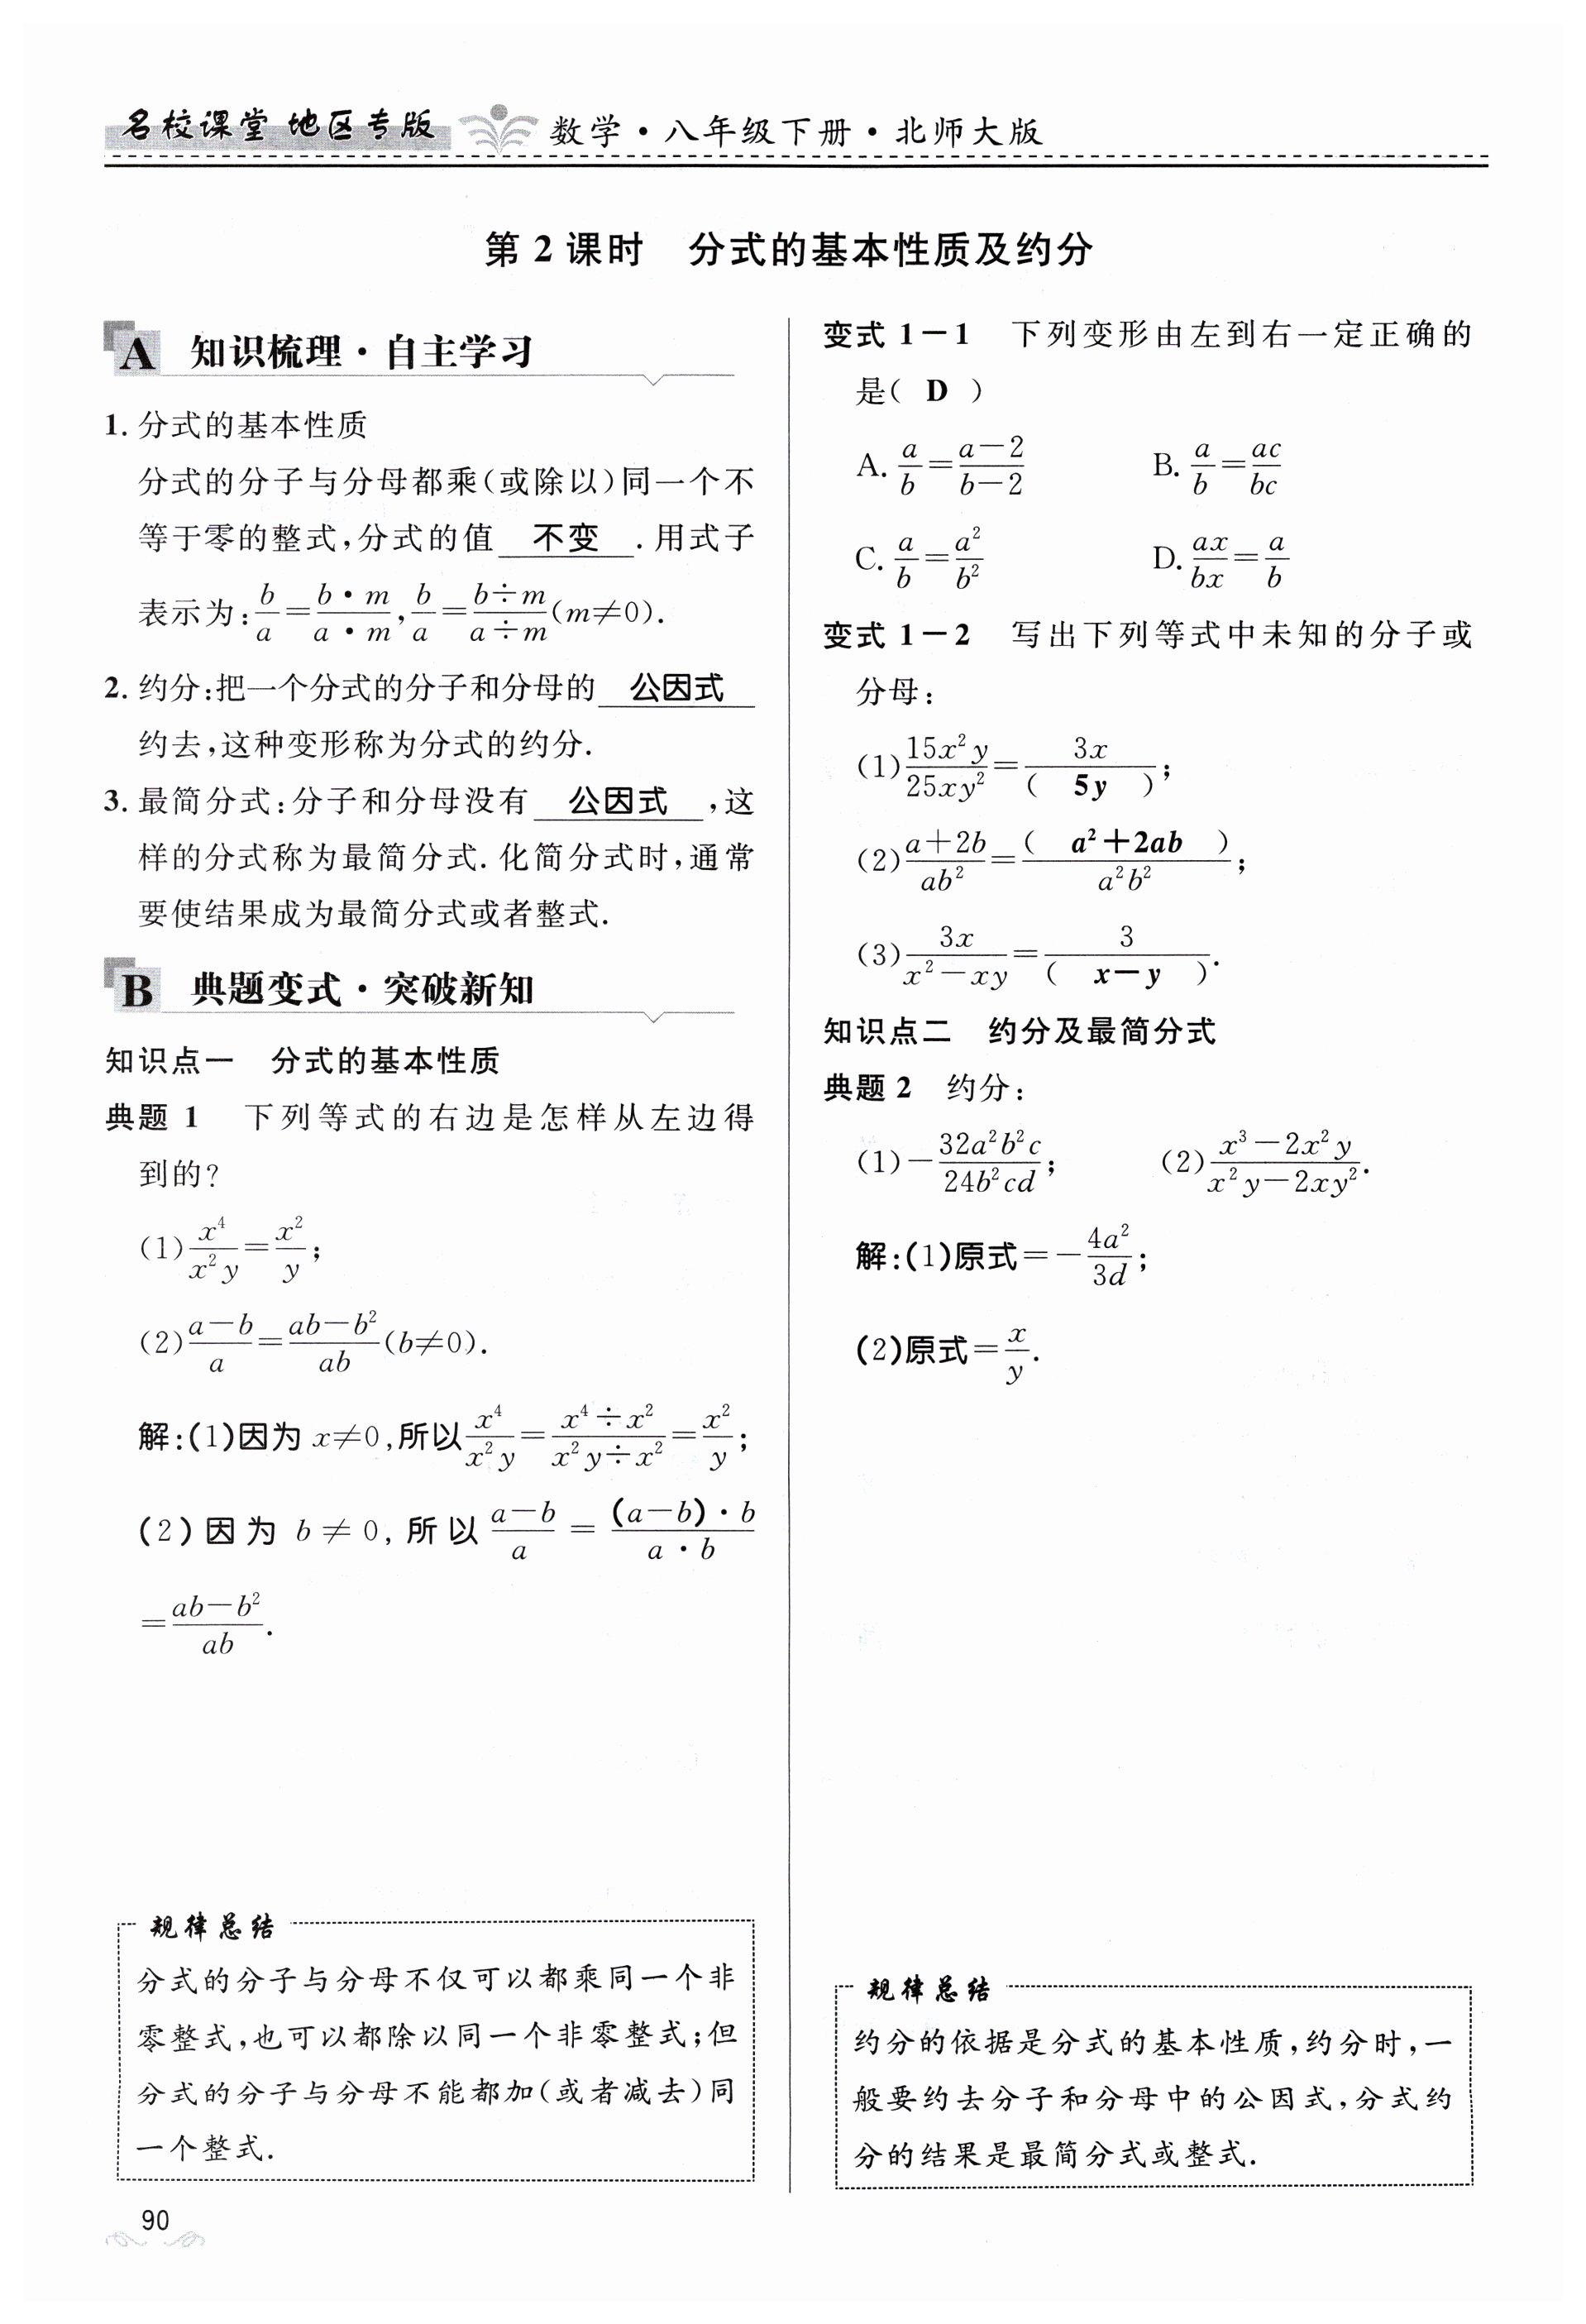 名校课堂 地区专版 数学·八年级下册·北师大版
第2课时 分式的基本性质及约分
A 知识梳理·自主学习
1. 分式的基本性质
分式的分子与分母都乘(或除以)同一个不
等于零的整式,分式的值 不变 .用式子
表示为:b/a=(b·m)/(a·m),b/a=(b÷m)/(a÷m)(m≠0).
2. 约分:把一个分式的分子和分母的 公因式
约去,这种变形称为分式的约分.
3. 最简分式:分子和分母没有 公因式 ,这
样的分式称为最简分式.化简分式时,通常
要使结果成为最简分式或者整式.
B 典题变式·突破新知
知识点一 分式的基本性质
典题 1 下列等式的右边是怎样从左边得
到的?
(1)x⁴/(x²y)=x²/y;
(2)(a-b)/a=(ab-b²)/(ab)(b≠0).
解:(1)因为 x≠0,所以x⁴/(x²y)=(x⁴÷x²)/(x²y÷x²)=x²/y;
(2)因为 b≠0,所以(a-b)/a=((a-b)·b)/(a·b)
=(ab-b²)/(ab).
规律总结
分式的分子与分母不仅可以都乘同一个非
零整式,也可以都除以同一个非零整式;但
分式的分子与分母不能都加(或者减去)同
一个整式.
90
变式 1-1 下列变形由左到右一定正确的
是( D )
A. a/b=(a-2)/(b-2) B. a/b=ac/bc
C. a/b=a²/b² D. ax/bx=a/b
变式 1-2 写出下列等式中未知的分子或
分母:
(1)15x²y/25xy²=3x/( 5y );
(2)(a+2b)/ab²=( a²+2ab )/a²b²;
(3)3x/(x²-xy)=3/( x-y ).
知识点二 约分及最简分式
典题 2 约分:
(1)-32a²b²c/24b²cd; (2)(x³-2x²y)/(x²y-2xy²).
解:(1)原式=-4a²/3d;
(2)原式=x/y.
规律总结
约分的依据是分式的基本性质,约分时,一
般要约去分子和分母中的公因式,分式约
分的结果是最简分式或整式.